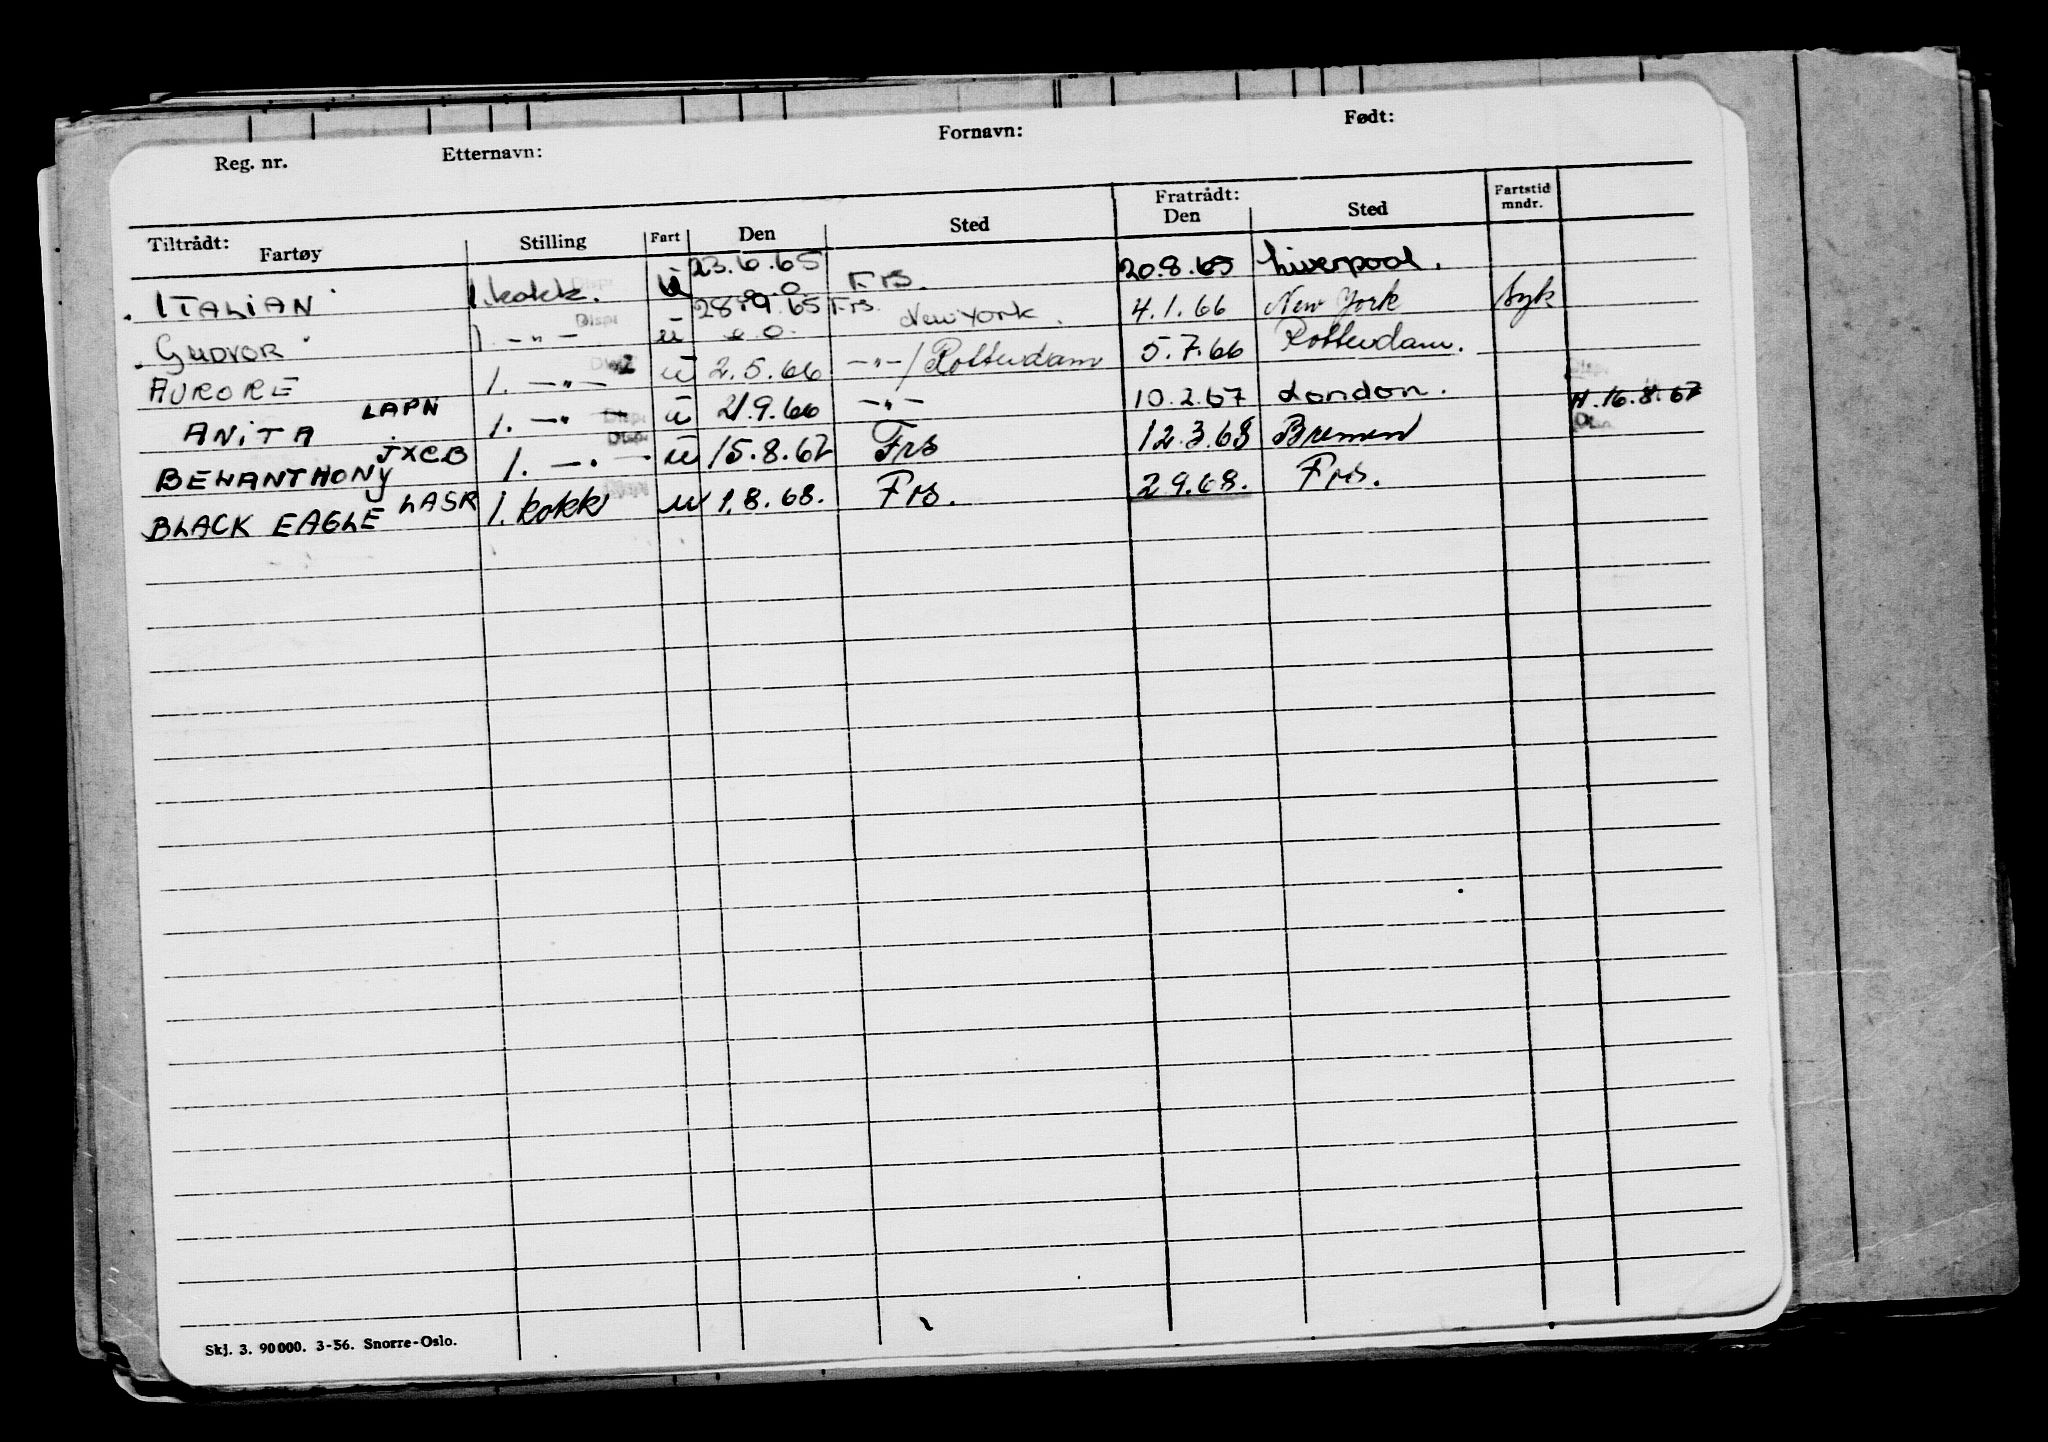 Reg. nr. Etternavn: Fornavn: Født:
Tiltrådt: Fartøy Stilling Fart Den Sted Fratrådt: Den Sted Fartstid mndr.
ITALIAN 1. kokk. u 23.6.65 Frs. 20.8.65 Liverpool.
GUDVOR 1. -"- u 28.9.65 Frs. New York. 4.1.66 New York syk
AURORE 1. -"- u 2.5.66 -"-/Rotterdam 5.7.66 Rotterdam.
ANITA LAPN 1. -"- u 21.9.66 -"- 10.2.67 London. H. 16.8.67
BEWANTHONY JXCB 1. -"- u 15.8.67 Frs 12.3.68 Bremen
BLACK EAGLE LASR 1. kokk u 1.8.68. Frs. 2.9.68. Frs.
Skj. 3. 90000. 3-56. Snorre-Oslo.